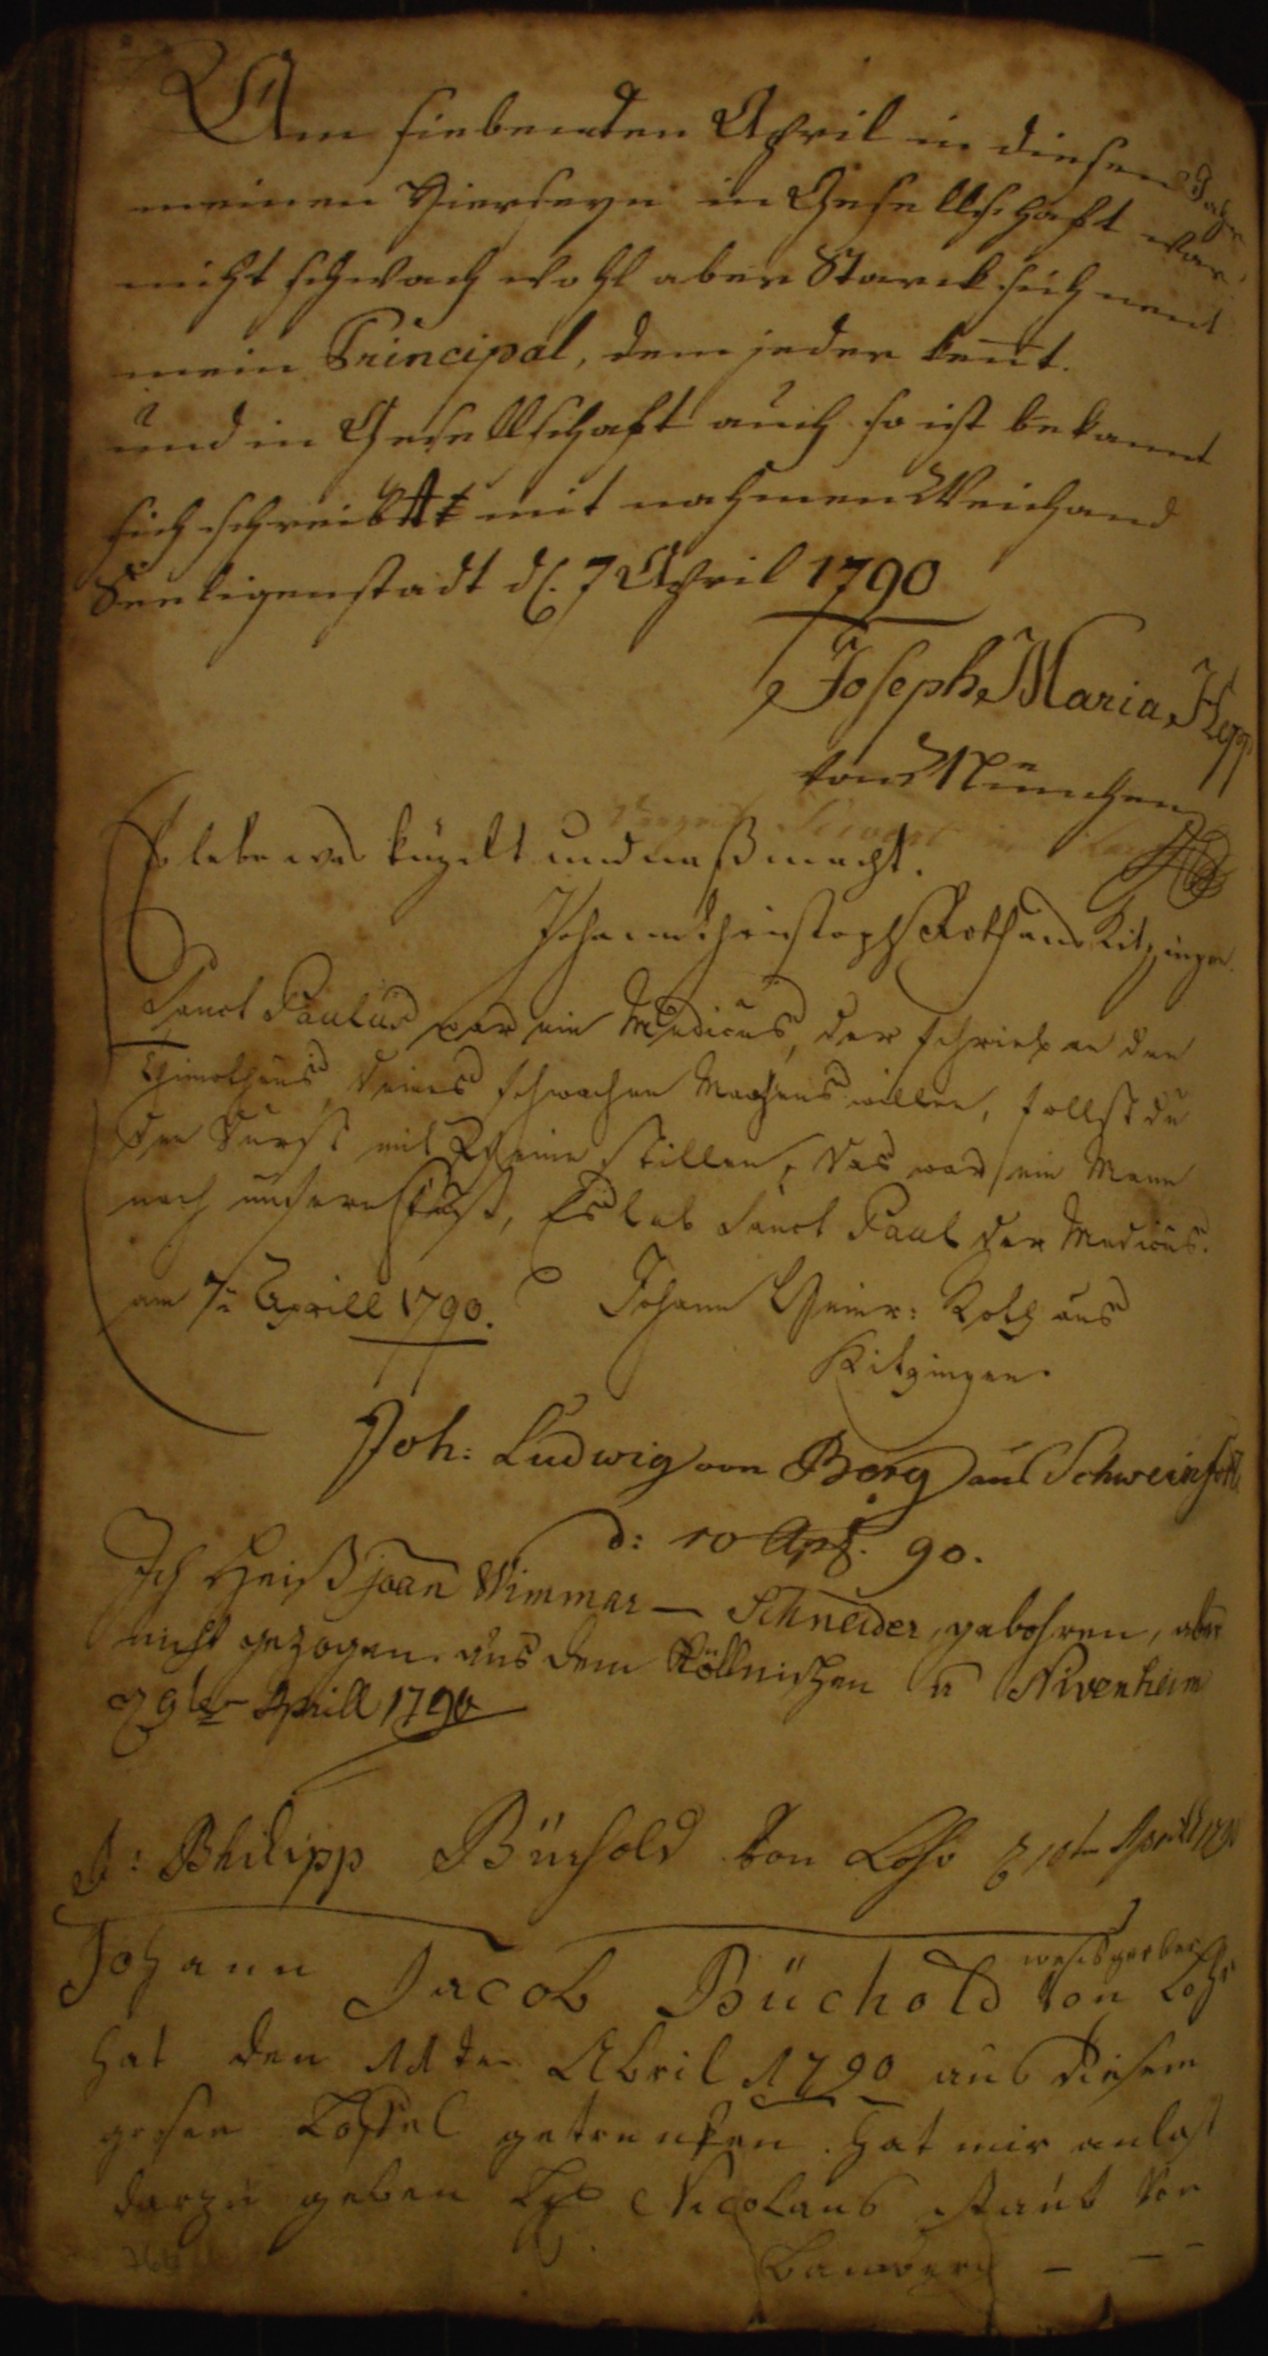 Am siebenden April in diesem Jahr
meinen Hierseyn in Gesellschafft war,
nicht schwach wohl aber Starck sich nent
mein Principal, dem jeder kent.
und in Gesellschaft auch so ist bekannt
sich schreibt mit nahmen Weichand
Seeligenstadt d. 7 April 1790
Joseph Maria Hepp
von München
Es lebe was küzelt und naß macht.
Johann Christoph Roth aus Kitzingen.
Sanct Paulus war ein Medicus, der schrieb an den
Thimotheus, deines schwachen Magens willen, sollst du
den Durst mit Weine stillen, das war ein Mann
nach unserm, Es leb Sanct Paul der Medicus.
am 7n Aprill 1790. Johann Heinr: Roth aus
Kitzingen.
Joh: Ludwig von Berg aus Schweinfort
d: 10 Apr. 90.
Ich Heiß joan Wimmar — Schneider, gebohren, aber
nicht gezogen. aus dem Köllnischen u Nivenheim
9te Aprill 1790
Philipp Büchold von Lohr d 10ten Aprill 1790
weisgerber
Johann Jacob Büchold von Lohr
hat den 11ten Abril 1790 aus diesem
grosen Löffel getrunken. hat mir anlaß
darzu geben Nicolaus Staub von
Bamberg — — —